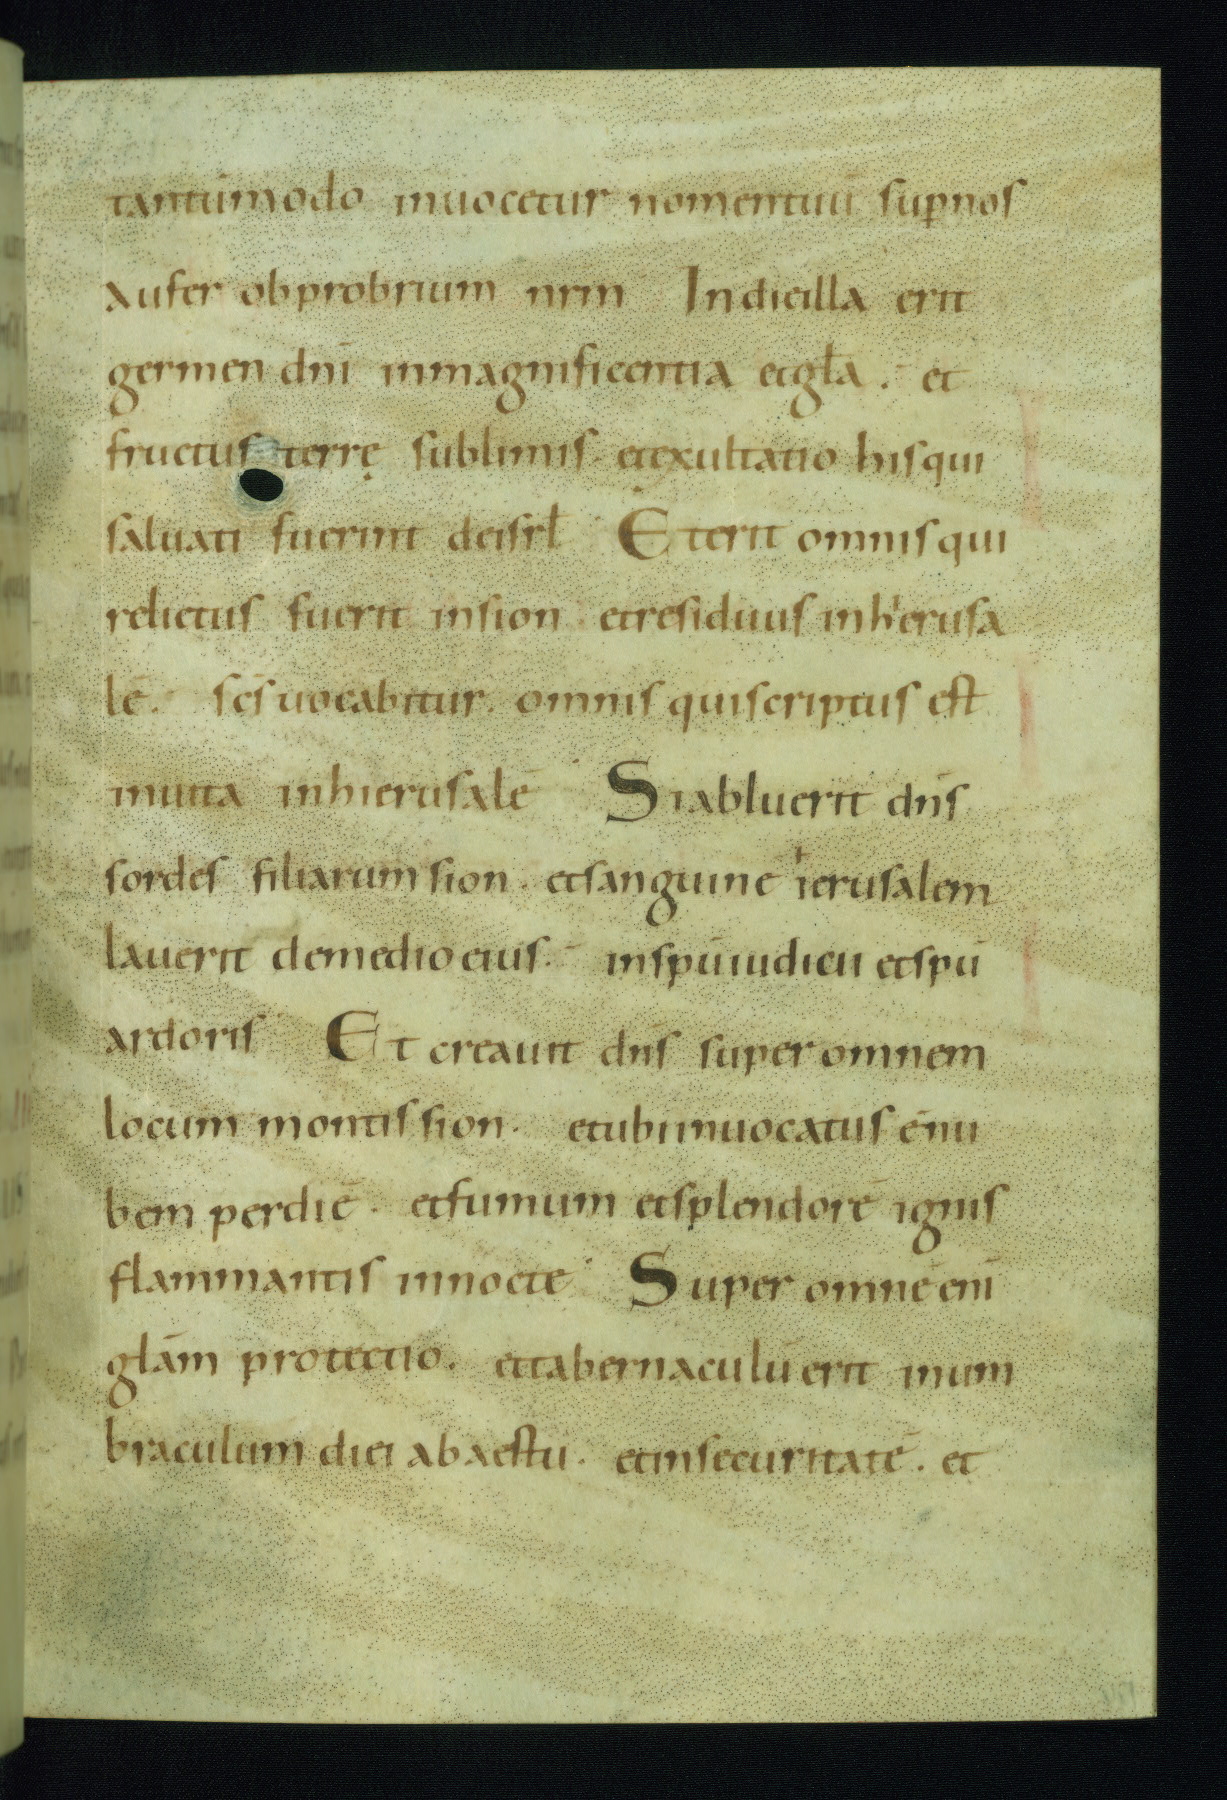 tantūmodo inuocetur nomentuū sup̄nos
aufer obprobrium nrm̄ Indieilla erit
germen dnī inmagnificentia etgl̄a. et
fructus terrę sublimis. etexultatio hisqui
saluati fuerint deisrl̄ Eterit omnisqui
relictus fuerit insion. etresiduus inhierusa
lē. scs̄ uocabitur. omnis quiscriptus est
inuita inhierusalē Siabluerit dns̄
sordes filiarum sion. etsanguinē hierusalem
lauerit demedioeius. inspūiudicii etspū
ardoris Et creauit dns̄ super omnem
locum montis sion. etubiinuocatus ē nu
bem perdiē. etfumum etsplendorē ignis
flammantis innocte Super omnē enī
glām protectio. ettabernaculū erit inum
braculum diei abaestu. etinsecuritatē. et